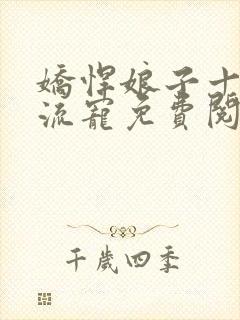 嬌悍娘子十
流寵免費閱
千歲四季